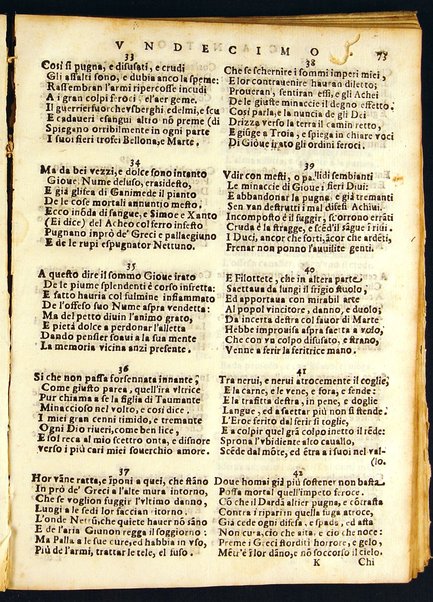 VNDECIMO. 73
33
Così si pugna, e disusati, e crudi
Gli assalti sono, e dubia anco la speme:
Rassembran l'armi ripercosse incudi
A i gran colpi feroci, e l'aer geme.
Il guerrier fuor ch'usberghi, ed elmi, e scu
E cadaueri esangui altro nō preme (di
Spiegano orribilmente in ogni parte
I suoi fieri trofei Bellona, e Marte.
34
Ma da bei vezzi, e dolce sono intanto
Gioue Nume deluso, era si desto,
E già glisea di Ganimede il pianto
De le cose mortali annuntio mesto.
Ecco inōda di sangue, e Simoe e Xanto
(Ei dice) del Acheo col ferro infesto
Pugnano in prò de' Greci e palla e giuno
E de le rupi e spugnator Nettuno.
35
A questo dire il sommo Gioue irato
De le piume splendenti è corso in fretta:
E fatto hauria col fulmine infiammato
De l'offeso suo Nume aspra vendetta:
Ma del petto diuin l'animo grato,
E pietà dolce a perdonar l'alletta
Dando pensier soaui a la sua mente
La memoria vicina anzi presente.
36
Si che non passa forsennata innante,
Come giusto parea, quell'ira vltrice
Pur chiama a se la figlia di Taumante
Minaccioso nel volto, e così dice.
I miei gran cenni rimido, e tremante
Ogni Dio riueri, come ben lice,
E sol reca al mio scettro onta, e disnore
verso i più cari miei souerchio amore.
37
Hor vāne ratta, e īponi a quei, che stāno
In prò de' Greci a l'alte mura intorno,
Che se voglion fuggir l'vltimo danno,
Lungi a le sedi lor faccian ritorno.
L'onde Nettū, che quiete hauer nō sāno
E de l'aria Giunon regga il soggiorno:
Ma Palla a le sue cure, ed habbia in vso
Più de l'armi, trattar le tele, el fuso.
38
Che se schernire i sommi imperi miei,
E lor contrauenire hauran diletto;
Proueran, sentiran essi, e gli Achei
De le giuste minaccie il degno effetto.
Così parla, e la nuncia de gli Dei
Drizza verso la terra il camin retto,
E giūge a Troia, e spiega in chiare voci
Di Gioue irato gli ordini feroci.
39
Vdir con mesti, e pallidi sembianti
Le minaccie di Gioue i fieri Diui:
E abbandonar la pugna e già tremanti
Sen van destrutti i mal difesi Achiui.
Incomposto è il fuggir, scorrono errāti
Cruda è la stragge, e scēd'il sāgue i riui.
I Duci, ancor che forti, ācor che ardēti,
Frenar non ponno l'auuilite genti.
40
E Filottete, che in altera parte
Saettaua da lungi il frigio stuolo,
Ed apportaua con mirabil arte
Al popol vincitore, danno, e duolo;
Da incerta destra col fauor di Marte
Hebbe improuisa aspra saetta a volo,
Che con vn colpo disusato, e strano,
Venne a ferir la feritrice mano.
41
Tra nerui, e nerui atrocemente il coglie,
E la carne, e le vene, e fora, e fende:
E la trafitta destra, in pene, e doglie
Langue, ed a saettar più non si stende.
L'Eroe ferito dal ferir si toglie,
E a colpir quel grā colpo inetto il rēde:
Sprona l'vbidiente alto cauallo,
Scēde dal mōte, ed ētra a i suoi nel val-
(lo.
42
Doue homai già più sostener non basta
Possa mortal quell'impeto feroce.
Cō che il Darda altier pugna, e cōtrasta
Contra i ripari in quella fuga atroce,
Già cede ogni difesa, e spada, ed asta
Non cura, ciò che aita, e ciò che noce:
Preme i Greci storditi horrore, e gelo,
Mētr'è i lor dāno, e nō soccorso il cielo.
K Chi